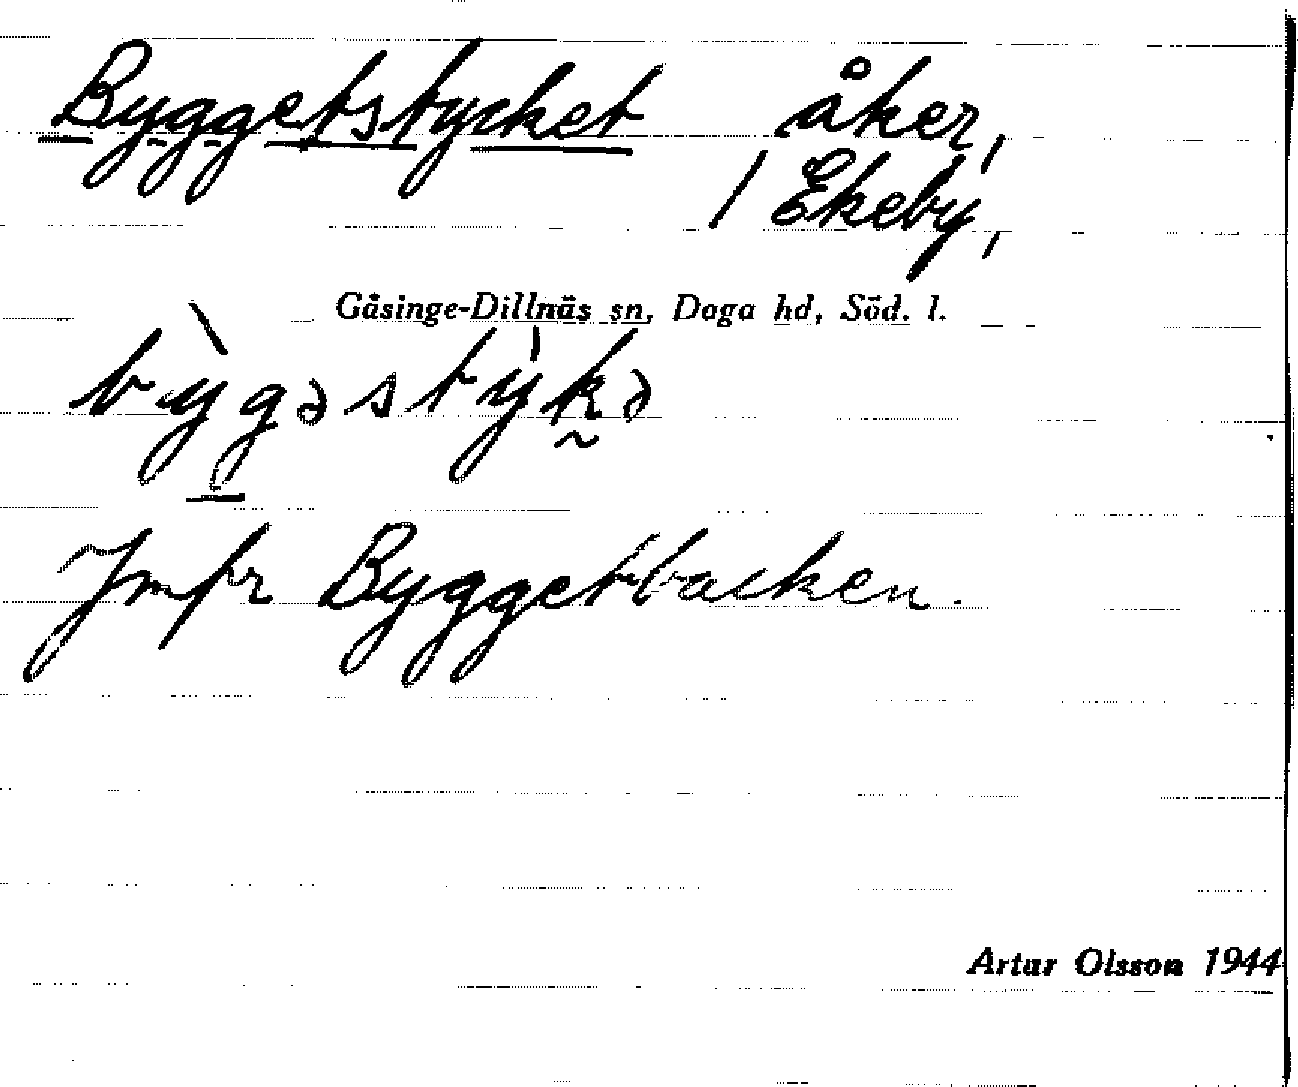 Byggetstycket åker,
/ Ekeby,
Gåsinge-Dillnäs sn, Daga hd, Söd. l.
bỳgəstỳkə
Jmfr Byggetbacken.
Artur Olsson 1944